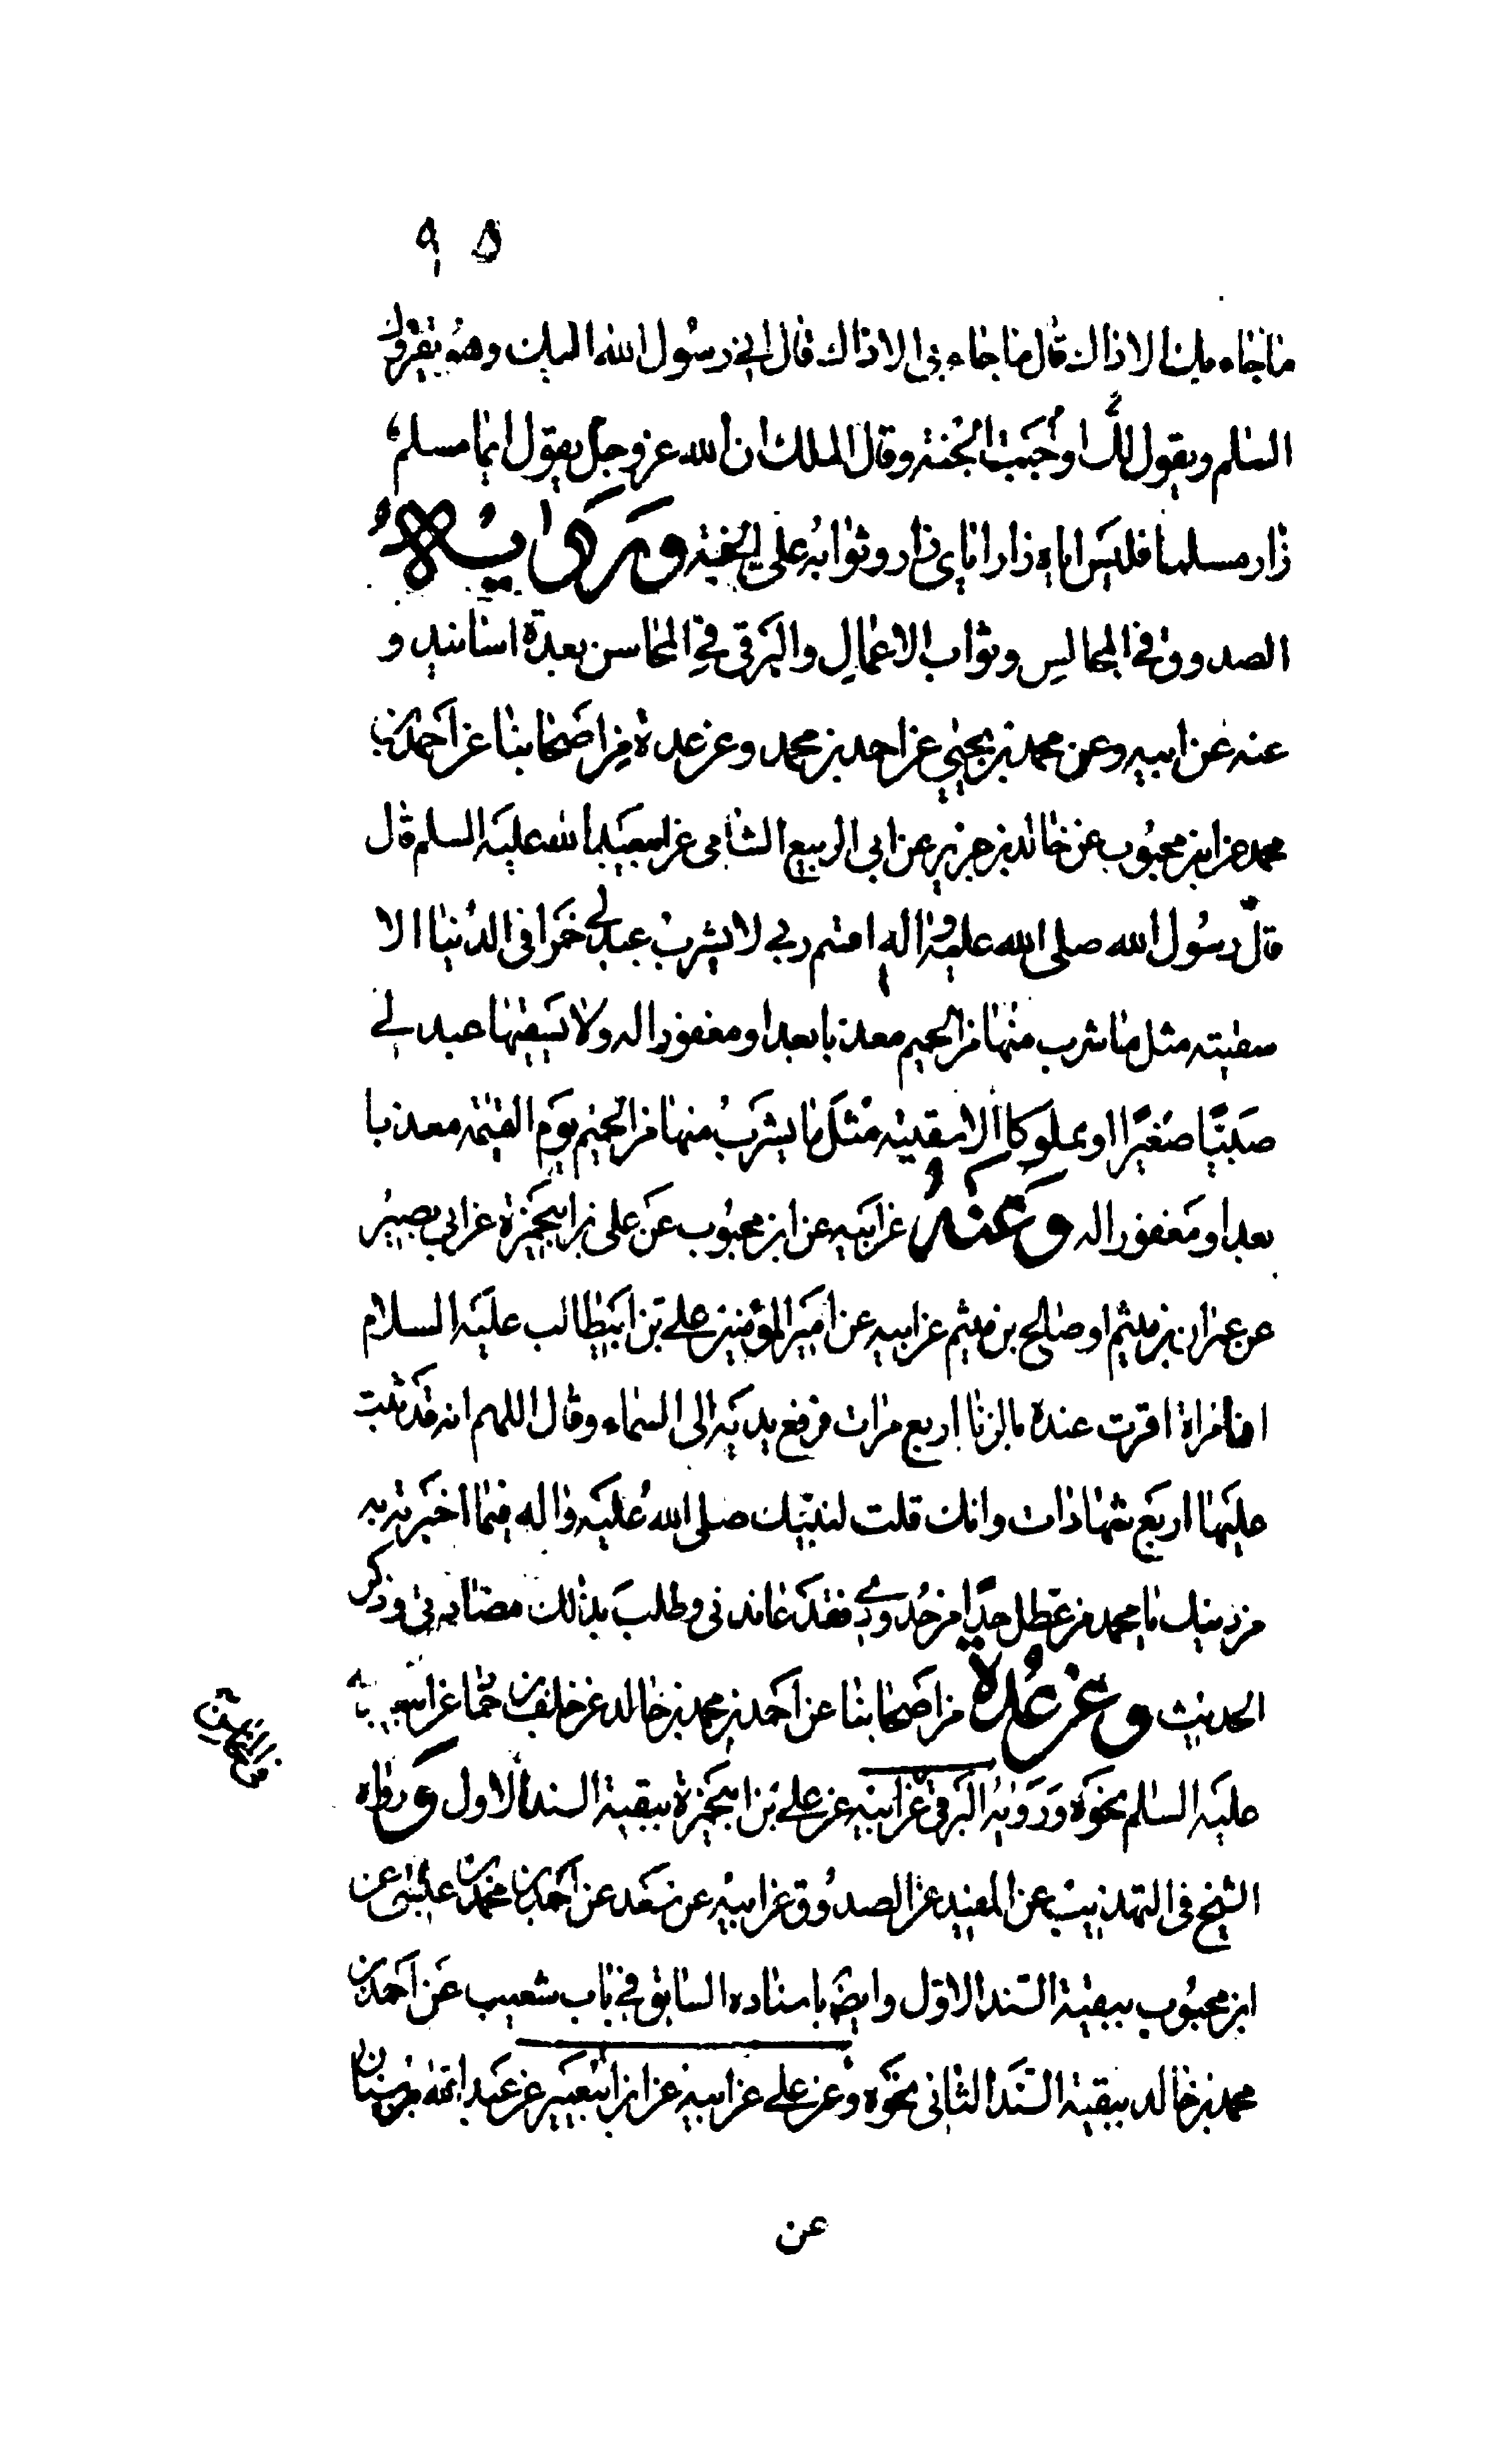 ٩٥
ما جاء بك الا ذاك قال ما جاء بي الا ذاك قال اني رسول الله اليك وهو يقرؤك
السلم ويقول لك اوجبت لك الجنة وقال الملك ان الله عز وجل يقول ايما مسلم
زار مسلما فليس اياه زار اياي زار وثوابه علي الجنة ورواه
الصدوق في المجالس وثواب الاعمال والبرقي في المحاسن بعدة اسانيد و
عنه عن ابيه وعن محمد بن يحيى عن احمد بن محمد وعن عدة من اصحابنا عن احمد بن
محمد عن ابن محبوب عن خالد بن جرير عن ابي الربيع الشامي عن ابيعبد الله عليه السلم قال
قال رسول الله صلى الله عليه واله اقسم ربي لا يشرب عبد لي خمرا في الدنيا الا
سقيته مثل ما شرب منها من الحميم معذبا بعد او مغفورا له ولا يسقيها عبد لي
صبيا صغيرا او مملوكا الا سقيته مثل ما يشرب منها من الحميم يوم القيمة معذبا
بعد او مغفورا له وعنه عن ابيه عن ابن محبوب عن علي بن ابيحمزة عن ابي بصير
عن عمران بن ميثم او صالح بن ميثم عن ابيه عن امير المؤمنين علي بن ابيطالب عليه السلام
ان امراة اقرت عنده بالزنا اربع مرات فرفع يديه الى السماء وقال اللهم انه قد ثبت
عليها اربع شهادات وانك قلت لنبيك صلى الله عليه واله فيما اخبرته به
من دينك يا محمد من عطل حدا من حدودي فقد عاندني وطلب بذلك مضادتي وذكر
الحديث وعن عدة من اصحابنا عن احمد بن محمد بن خالد عن خلف بن حماد عن ابيعبد الله
عليه السلم نحوه ورويه البرقي عن ابيه عن علي بن ابيحمزة ببقية السند الاول ورواه
الشيخ في التهذيب عن المفيد عن الصدوق عن ابيه عن سعد عن احمد بن محمد بن عيسى عن
ابن محبوب ببقية السند الاول وايضا باسناده السابق في باب شعيب عن احمد بن
محمد بن خالد ببقية السند الثاني نحوه وعن علي عن ابيه عن ابن ابيعمير عن عبد الله بن سنان
عن